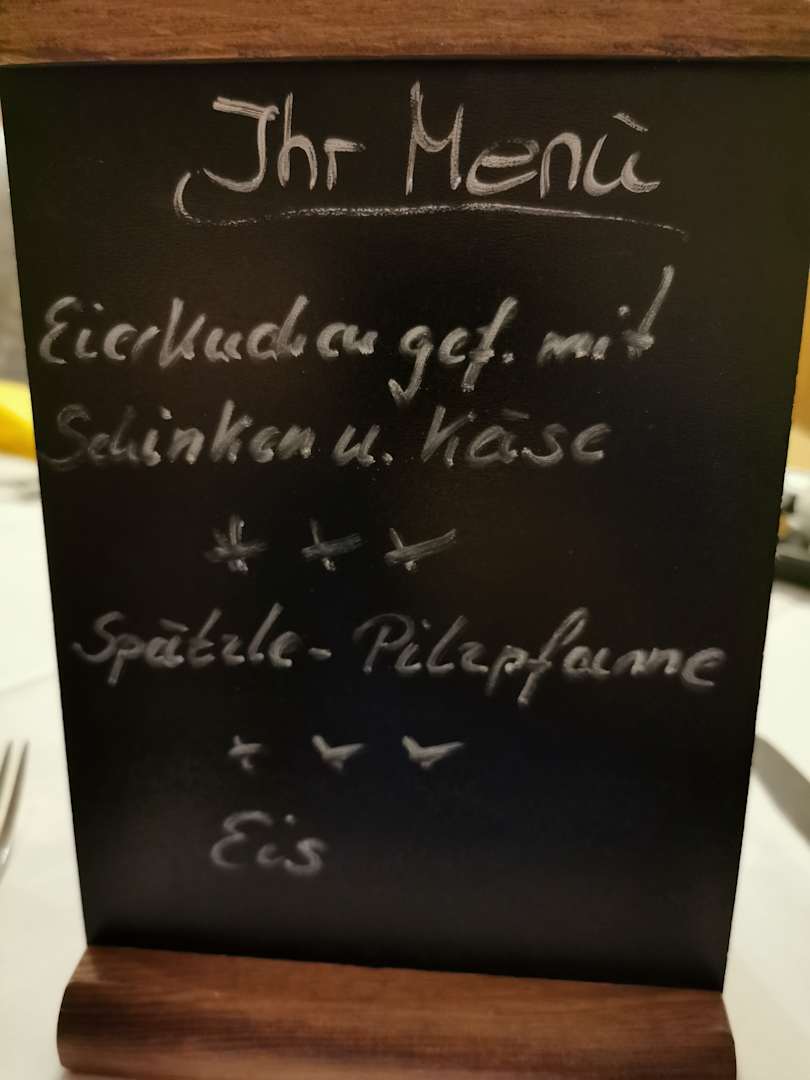 Ihr Menü
Eierkuchen gef. mit
Schinken u. Käse
* * *
Spätzle- Pilzpfanne
* * *
Eis